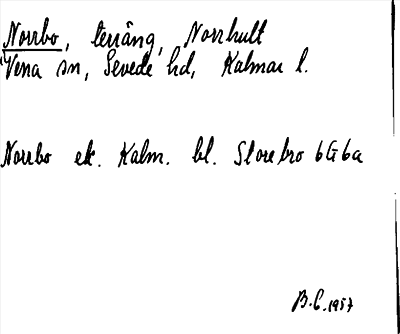 Norrbo, terräng, Norrhult
Vena sn, Sevede hd, Kalmar l.
Norrbo ek. Kalm. bl. Storebro 6G 6a
B.C. 1957